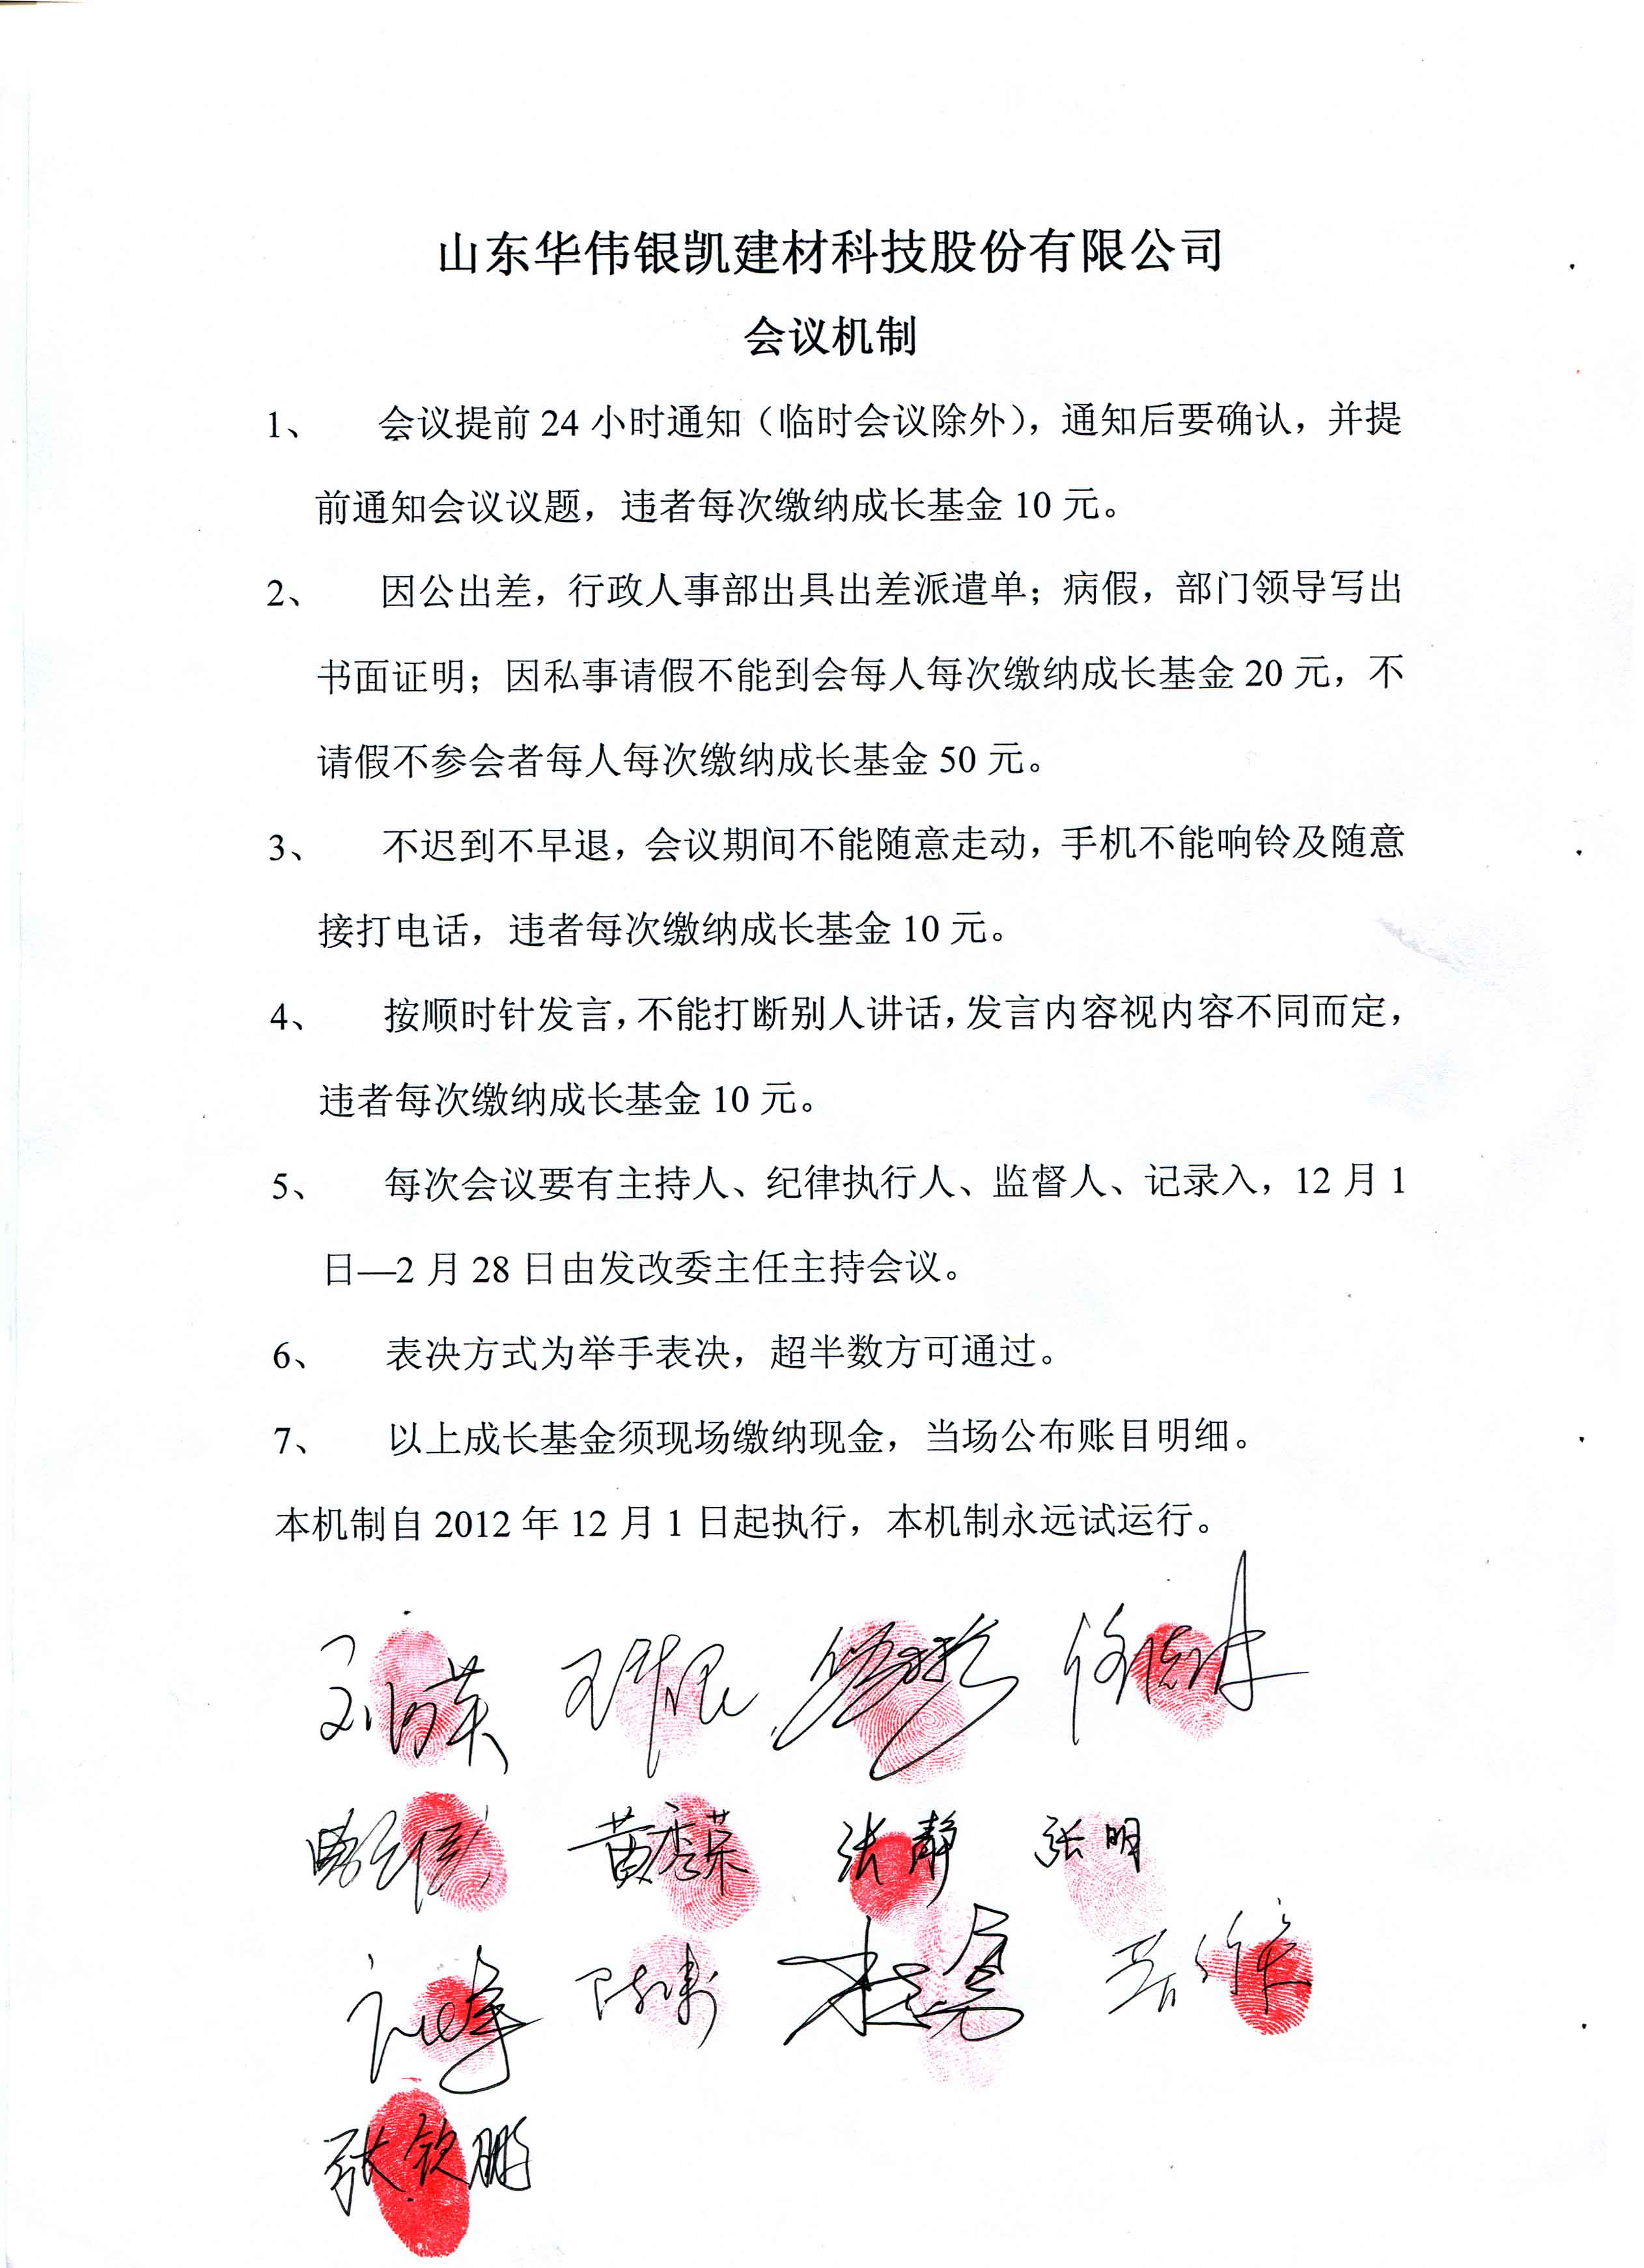 山东华伟银凯建材科技股份有限公司
会议机制
1、 会议提前 24 小时通知（临时会议除外），通知后要确认，并提
前通知会议议题，违者每次缴纳成长基金 10 元。
2、 因公出差，行政人事部出具出差派遣单；病假，部门领导写出
书面证明；因私事请假不能到会每人每次缴纳成长基金 20 元，不
请假不参会者每人每次缴纳成长基金 50 元。
3、 不迟到不早退，会议期间不能随意走动，手机不能响铃及随意
接打电话，违者每次缴纳成长基金 10 元。
4、 按顺时针发言，不能打断别人讲话，发言内容视内容不同而定，
违者每次缴纳成长基金 10 元。
5、 每次会议要有主持人、纪律执行人、监督人、记录入，12 月 1
日—2 月 28 日由发改委主任主持会议。
6、 表决方式为举手表决，超半数方可通过。
7、 以上成长基金须现场缴纳现金，当场公布账目明细。
本机制自 2012 年 12 月 1 日起执行，本机制永远试运行。
黄秀荣 张静 张明
张钦鹏